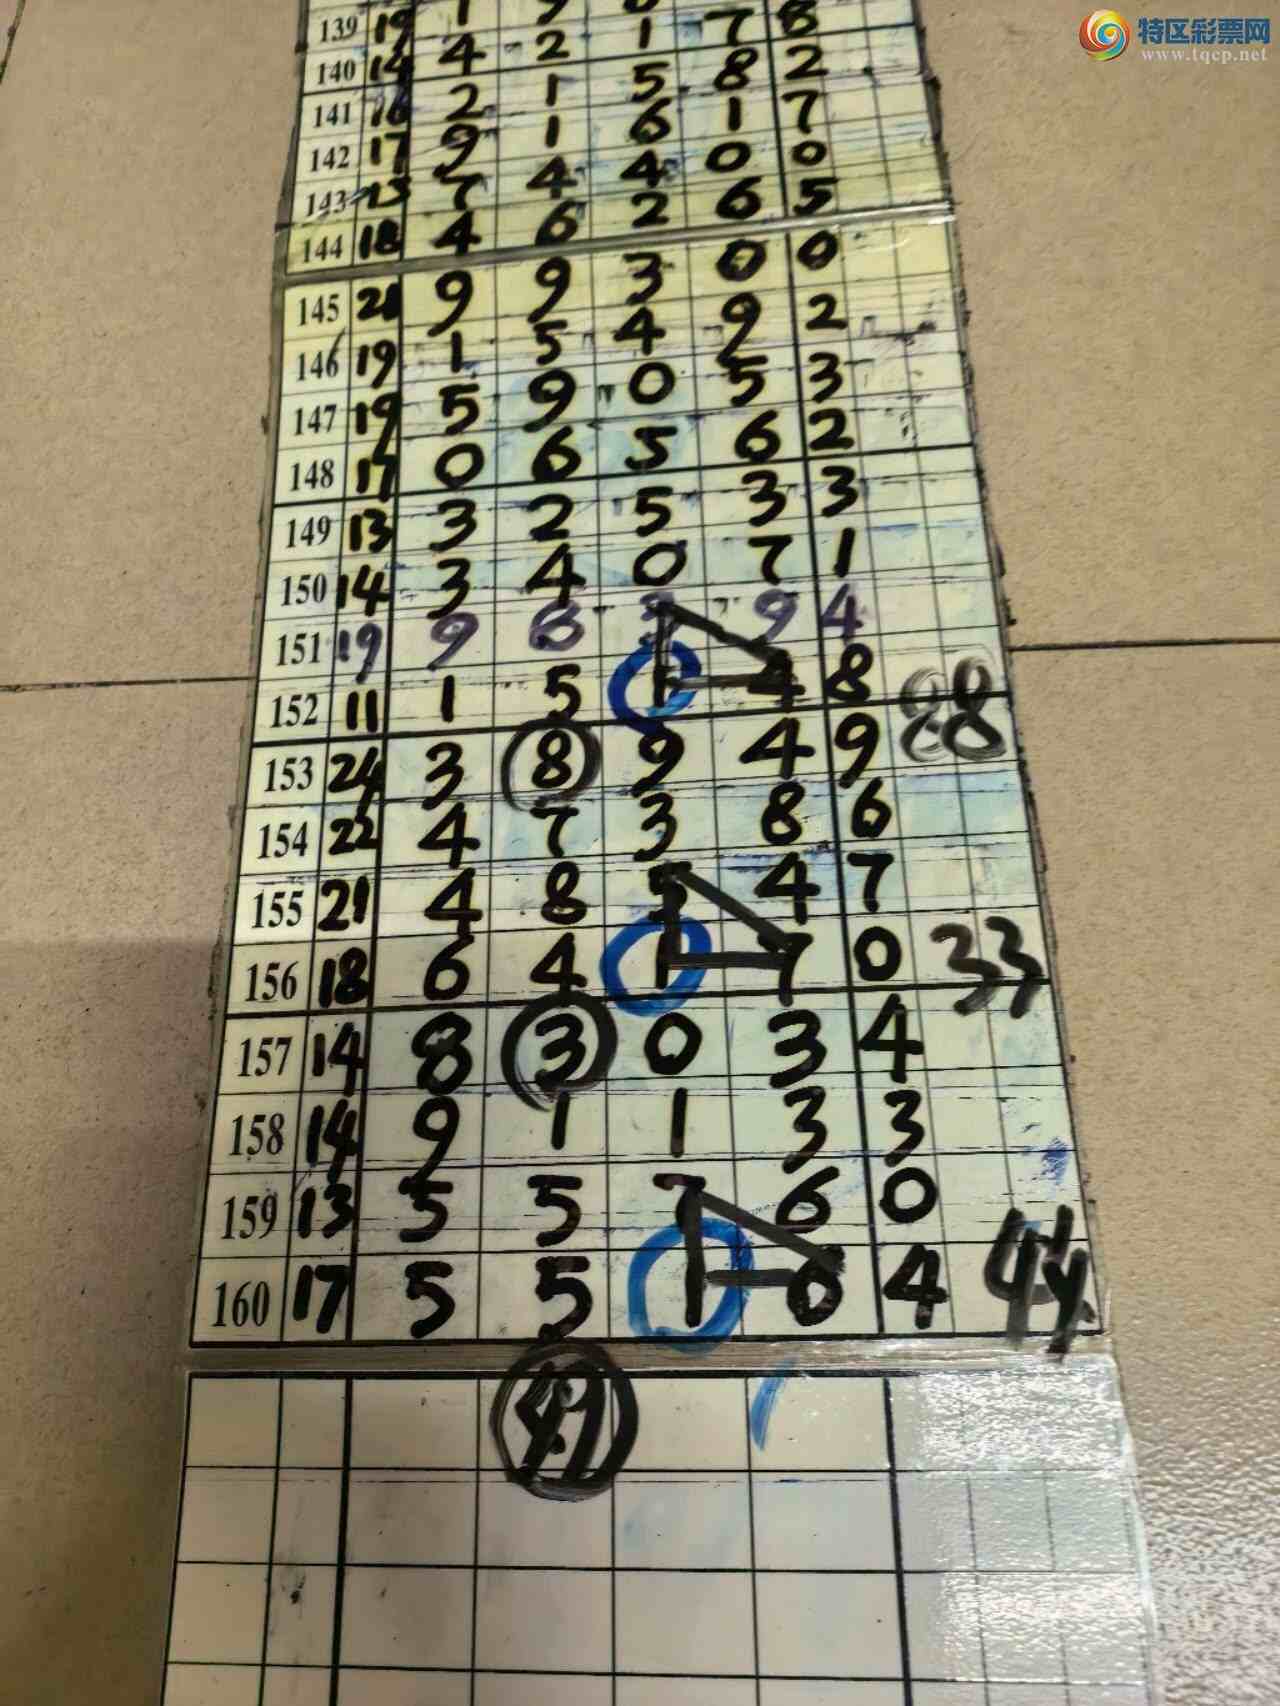 特区彩票网
www.tqcp.net
139 19 1 9 7
140 14 4 2 1 8 2
141 16 2 1 5 1 7
142 17 9 1 6 0 0
143 7 4 4 6 5
144 18 4 6 2 0 0
145 21 9 9 3 9 2
146 19 1 5 4 5 3
147 19 5 9 0 6 2
148 17 0 6 5 3 3
149 13 3 2 5 7 1
150 14 3 4 0 9 4
151 19 9 6 3 4 8
152 11 1 5 1 4 9 88
153 24 3 8 9 8 6
154 22 4 7 3 4 7
155 21 4 8 5 7 0
156 18 6 4 1 3 4 33
157 14 8 3 0 3 3
158 14 9 1 1 6 0
159 13 5 5 7 6 4
160 17 5 5 1 44